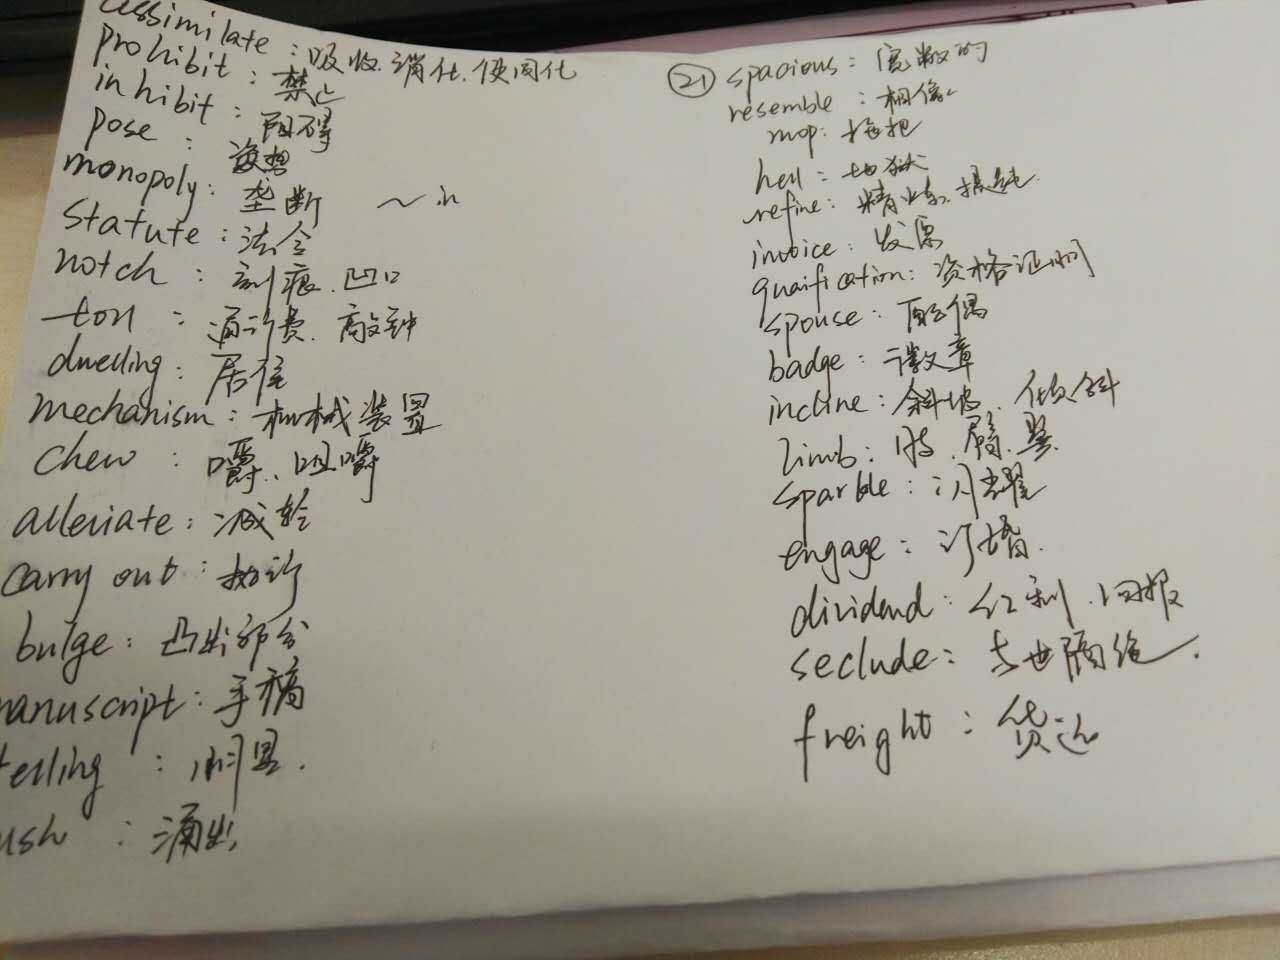 assimilate : 吸收.消化.使同化
prohibit : 禁止
inhibit : 阻碍
pose :
monopoly : 垄断 ~in
statute : 法令
notch : 刻痕.凹口
toll : 通行费.敲钟
dwelling : 居住
mechanism : 机械装置
chew : 嚼、咀嚼
alleviate : 减轻
carry out : 执行
bulge : 凸出部分
manuscript : 手稿
telling : 明显.
ush : 涌出
21 spacious : 宽敞的
resemble : 相像
mop : 拖把
hell : 地狱
refine : 精炼.提纯
invoice : 发票
quaification : 资格证明
spouse : 配偶
badge : 徽章
incline : 斜坡.倾斜
limb : 肢.臂.翼
sparkle : 闪耀
engage : 订婚.
dividend : 红利.回报
seclude : 与世隔绝.
freight : 货运